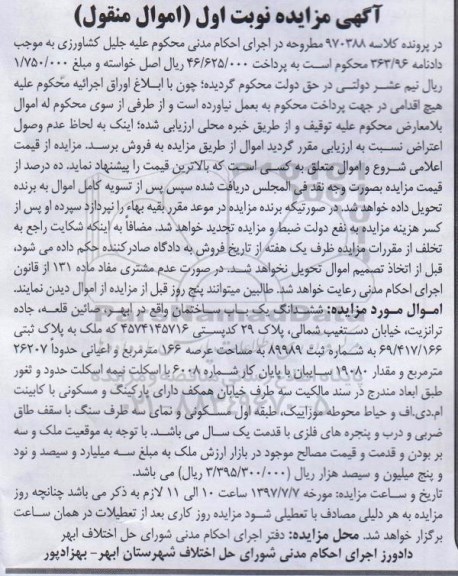 آگهی مزایده نوبت اول (اموال منقول)
در پرونده کلاسه ۹۷۰۳۸۸ مطروحه در اجرای احکام مدنی محکوم علیه جلیل کشاورزی به موجب
دادنامه ۳۶۳/۹۶ محکوم است به پرداخت ۴۶/۶۲۵/۰۰۰ ریال اصل خواسته و مبلغ ۱/۷۵۰/۰۰۰
ریال نیم عشر دولتی در حق دولت محکوم گردیده؛ چون با ابلاغ اوراق اجرائیه محکوم علیه
هیچ اقدامی در جهت پرداخت محکوم به بعمل نیاورده است و از طرفی از سوی محکوم له اموال
بلامعارض محکوم علیه توقیف و از طریق خبره محلی ارزیابی شده؛ اینک به لحاظ عدم وصول
اعتراض نسبت به ارزیابی مقرر گردید اموال از طریق مزایده به فروش برسد. مزایده از قیمت
اعلامی شروع و اموال متعلق به کسی است که بالاترین قیمت را پیشنهاد نماید. ده درصد از
قیمت مزایده بصورت وجه نقد فی المجلس دریافت شده سپس پس از تسویه کامل اموال به برنده
تحویل داده خواهد شد. در صورتیکه برنده مزایده در موعد مقرر بقیه بهاء را نپردازد سپرده او پس از
کسر هزینه مزایده به نفع دولت ضبط و مزایده تجدید خواهد شد. مضافاً به اینکه شکایت راجع به
تخلف از مقررات مزایده ظرف یک هفته از تاریخ فروش به دادگاه صادر کننده حکم داده می شود،
قبل از اتخاذ تصمیم اموال تحویل نخواهد شد. در صورت عدم مشتری مفاد ماده ۱۳۱ از قانون
اجرای احکام مدنی رعایت خواهد شد. طالبین میتوانند پنج روز قبل از مزایده از اموال دیدن نمایند.
اموال مورد مزایده: شش دانگ یک باب ساختمان واقع در ابهر، صائین قلعه، جاده
ترانزیت، خیابان دستغیب شمالی، پلاک ۲۹ کدپستی ۴۵۷۴۱۴۵۷۱۶ که ملک به پلاک ثبتی
۶۹/۴۱۷/۱۶۶ به شماره ثبت ۸۹۹۸۹ به مساحت عرصه ۱۶۶ مترمربع و اعیانی حدوداً ۲۶۲۰۷
مترمربع و مقدار ۱۹۰۸۰ سایبان با پایان کار شماره ۶۰۰۸ با اسکلت نیمه اسکلت حدود و ثغور
طبق ابعاد مندرج در سند مالکیت سه طرف خیابان همکف دارای پارکینگ و مسکونی با کابینت
ام.دی.اف و حیاط محوطه موزاییک، طبقه اول مسکونی و نمای سه طرف سنگ با سقف طاق
ضربی و درب و پنجره های فلزی با قدمت یک سال می باشد. با توجه به موقعیت ملک و سه
بر بودن و قدمت و قیمت مصالح موجود در بازار ارزش ملک به مبلغ سه میلیارد و سیصد و نود
و پنج میلیون و سیصد هزار ریال (۳/۳۹۵/۳۰۰/۰۰۰ ریال) می باشد.
تاریخ و ساعت مزایده: مورخه ۱۳۹۷/۷/۷ ساعت ۱۰ الی ۱۱ لازم به ذکر می باشد چنانچه روز
مزایده به هر دلیلی مصادف با تعطیلی شود مزایده روز کاری بعد از تعطیلات در همان ساعت
برگزار خواهد شد. محل مزایده: دفتر اجرای احکام مدنی شورای حل اختلاف ابهر
دادورز اجرای احکام مدنی شورای حل اختلاف شهرستان ابهر- بهزادپور